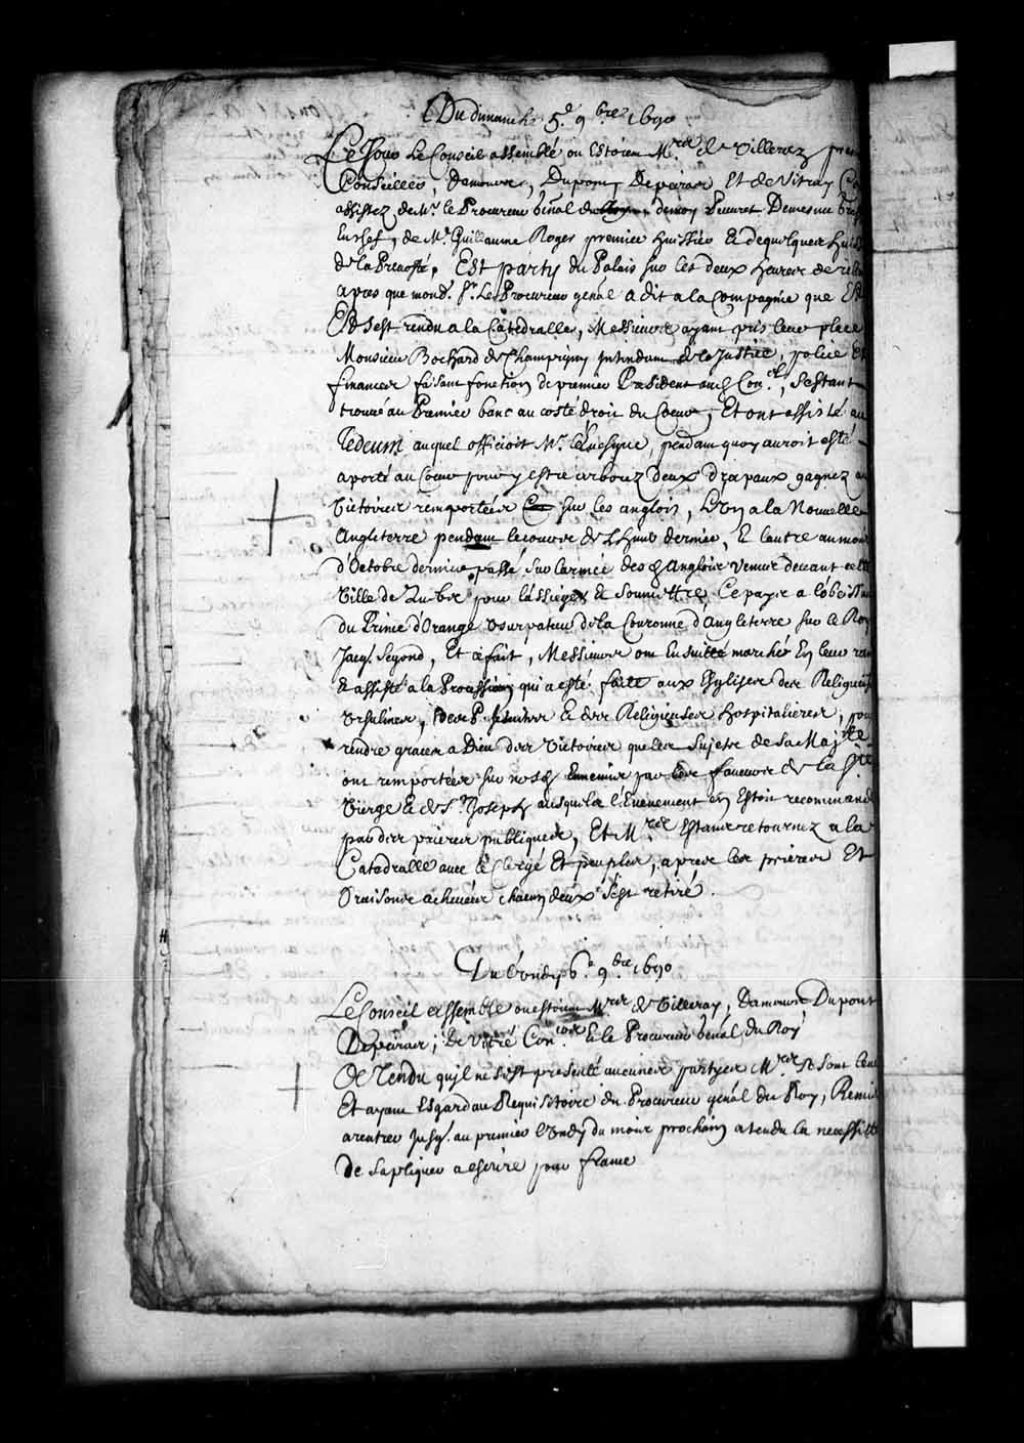 Du dimanche 5.e 9bre 1690
Ce Jour Le Conseil assemblé ou Estoien Mrs. de Villeray
Conseiller, Damours, Dupont, Depeiras Et de Vitray
assistez de Mr. le Procureur genal du Peuvret Demesnu
En chef, de Me. Guillaume Roger premier huissier & de quelques
de la Prevosté, Est party du Palais sur les deux heures de
apres que mond. Sr. Le Procureur genal a dit a la Compagnie que
Et s'est rendu a la Catedralle, Messieurs ayant pris leur place
Monsieur Bochard de Champigny Intendant de la Justice, police Et
finances faisant fonction de premier President aud. Con.el, s'estant
trouvé au Premier banc au costé droit du Coeur, Et ont assisté au
Tedeum auquel officioit Mr. L'Evesque, pendant quoy auroit esté
aporté au Coeur pour y estre arborez deux drapaux gagnez
Victoires remportées sur les anglois, L'un a la Nouvelle
Angleterre pendant le cours de L'hiver dernier, & lautre au mois
d'Octobre dernier passé sur larmée desd. Anglois venus devant cette
Ville de Quebec pour l'assieger & soumettre Ce païs a lobeissance
du Prince d'Orange Usurpateur de la Couronne d'Angleterre sur le Roy
Jacq. Segond, Et ce fait, Messieurs ont Ensuitte marché En leur
& assisté a la Procession qui a esté faite aux Esglises des Religieuses
Ursulines, des P. Jesuites & des Religieuses hospitalieres,
rendre graces a Dieu des Victoires que les Sujets de sa Maj.té
ont remportées sur nosd. Ennemis par les faveurs de la Ste
Vierge & de St. Joseph ausquels l'Evenement en Estoit recommandé
par des prieres publiques, Et Mrs. Estant retournez a la
Catedralle avec le Clergé Et peuples, apres les prieres Et
Oraisons achevées chacun deux s'est retiré.
Du Lundy 6.e 9bre 1690
Le Conseil assemblé ou estoient Mrs. de Villeray, Damours Dupont
Depeiras; de Vitré Con.ers & le Procureur genal du Roy
Attendu quil ne s'est presenté aucunes partyes Mrs. se sont
Et ayant Esgard au Requisitoire du Procureur genal du Roy,
a rentrer Jusq. au premier Lundy du mois prochain atendu la necessité
de sapliquer a escrire pour france